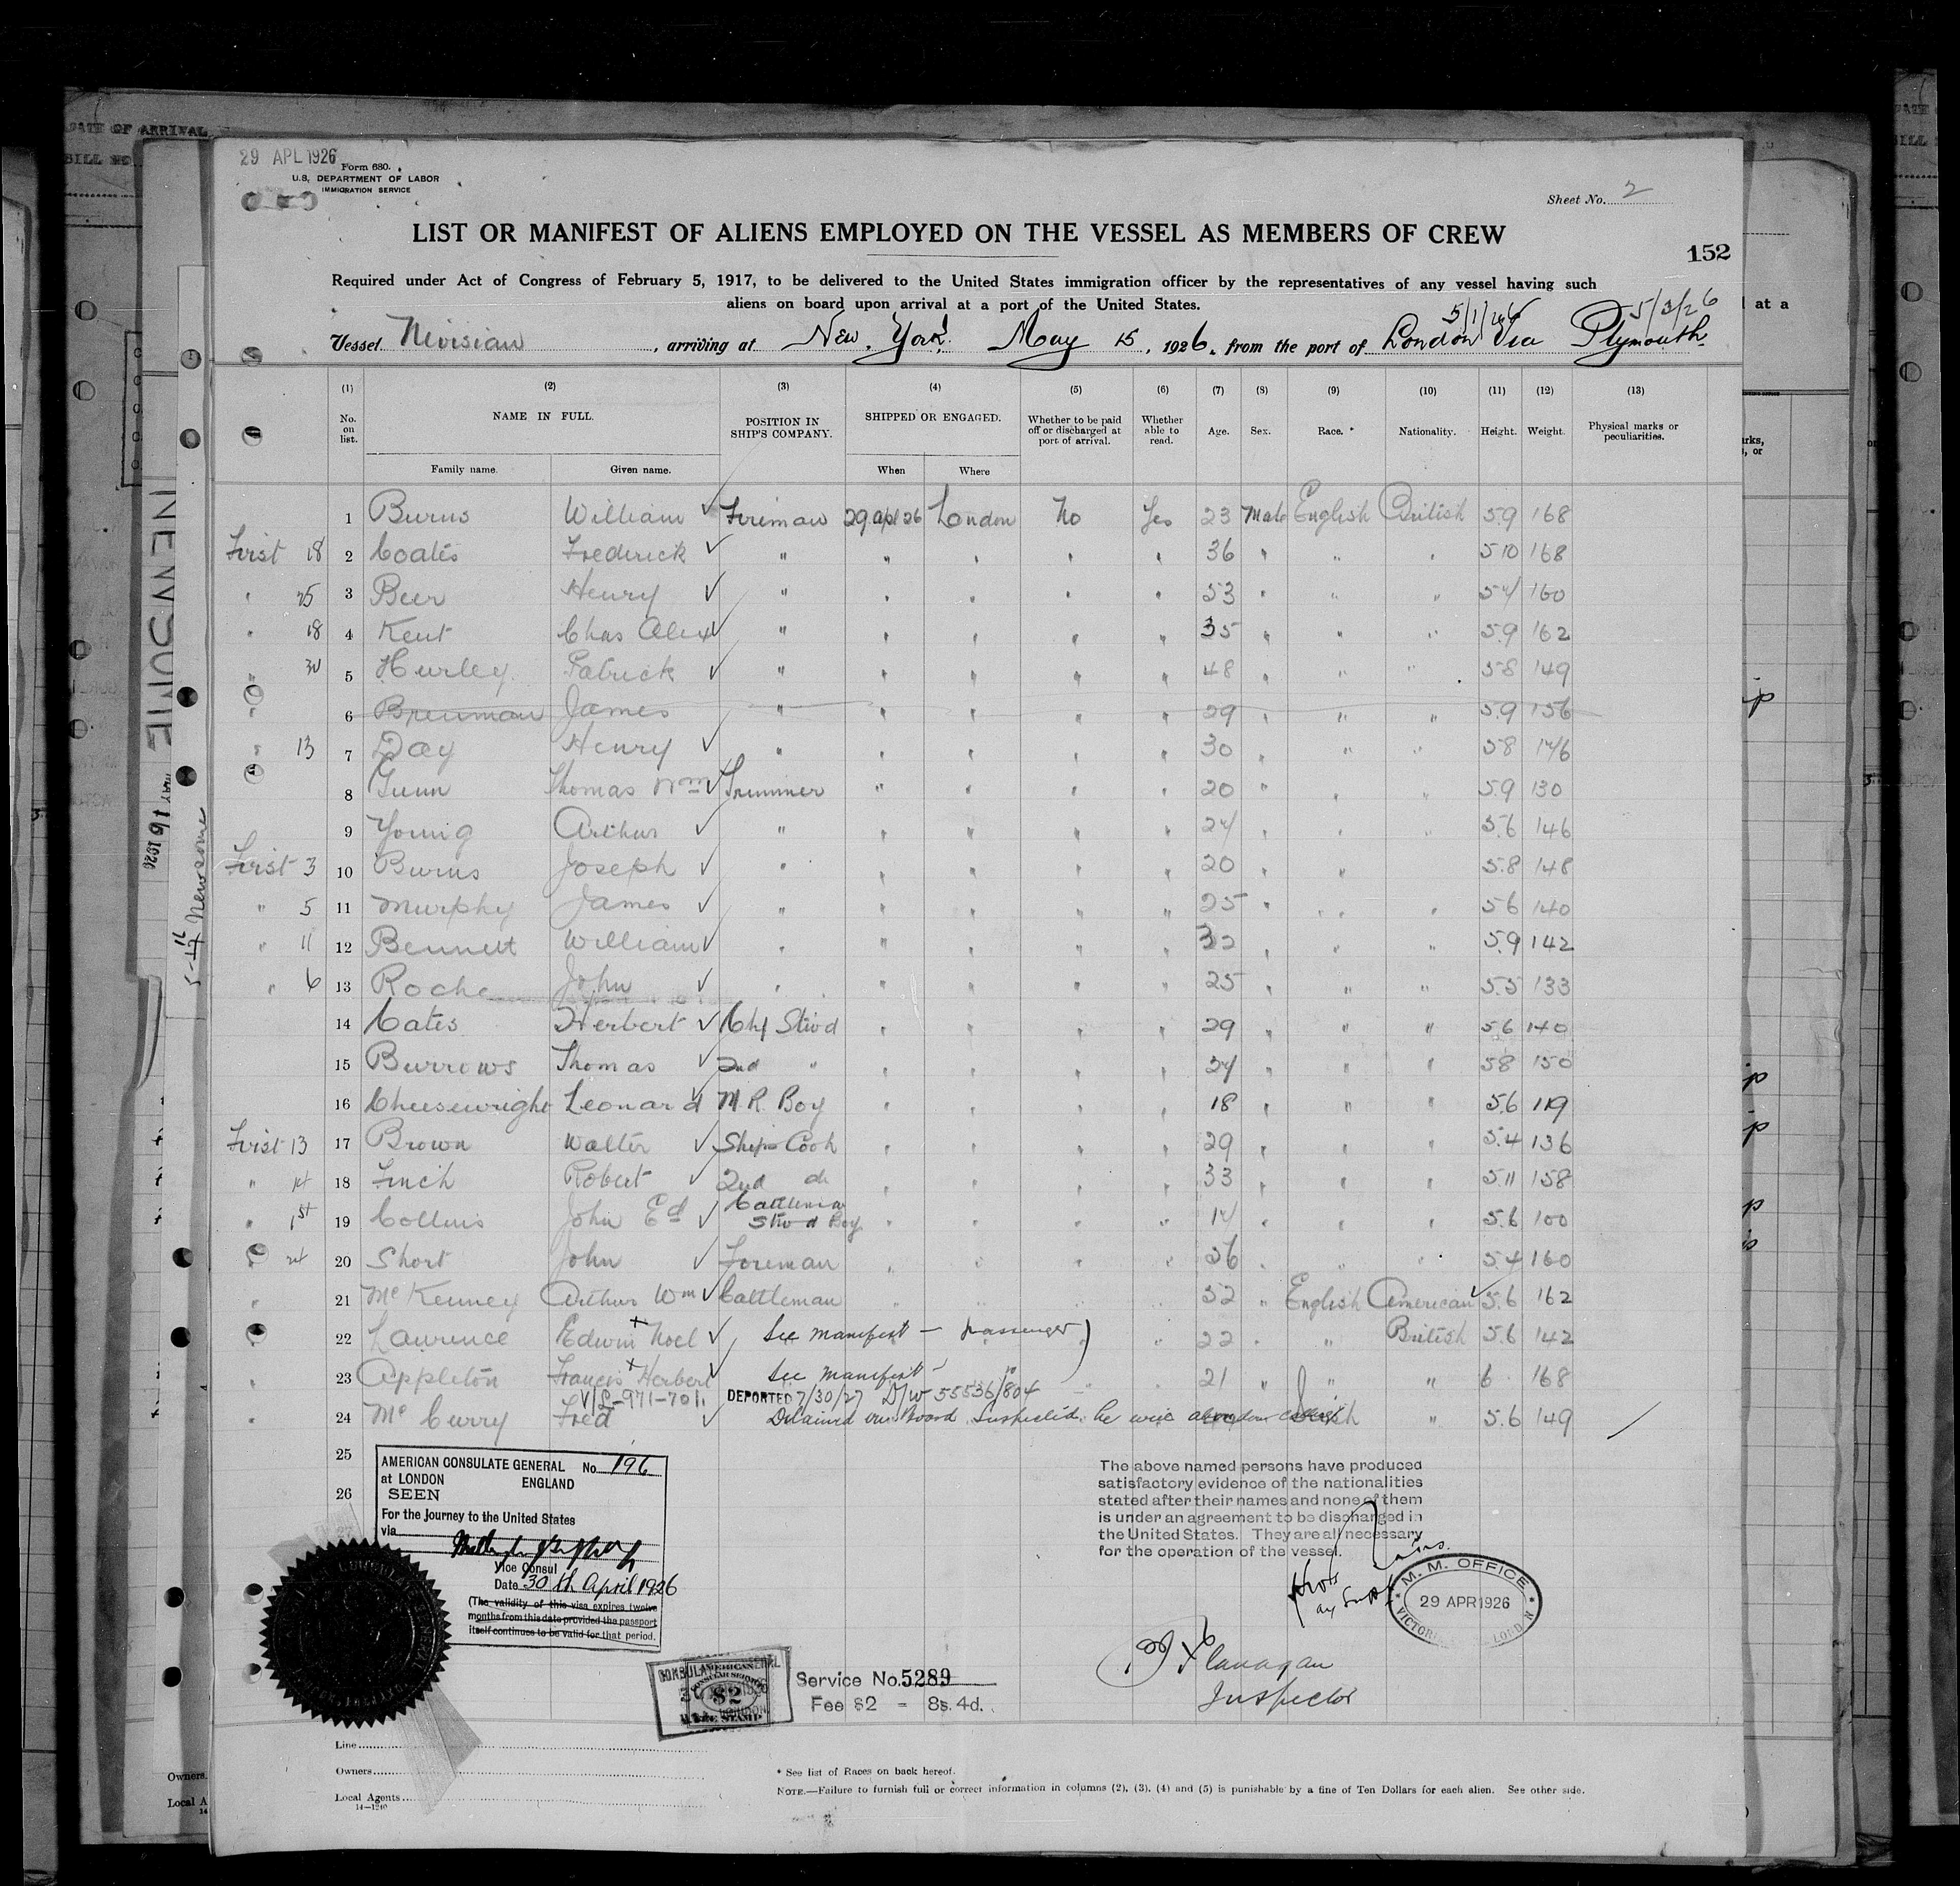 29 APL 1926
Form 680.
U.S. DEPARTMENT OF LABOR
IMMIGRATION SERVICE
Sheet No. 2
LIST OR MANIFEST OF ALIENS EMPLOYED ON THE VESSEL AS MEMBERS OF CREW
152
Required under Act of Congress of February 5, 1917, to be delivered to the United States immigration officer by the representatives of any vessel having such
aliens on board upon arrival at a port of the United States.
5/1/26 5/3/26
Vessel Nivisian, arriving at New York May 15, 1926, from the port of London Via Plymouth
(1) (2) (3) (4) (5) (6) (7) (8) (9) (10) (11) (12) (13)
No. on list. NAME IN FULL. POSITION IN SHIP'S COMPANY. SHIPPED OR ENGAGED. Whether to be paid off or discharged at port of arrival. Whether able to read. Age. Sex. Race.* Nationality. Height. Weight. Physical marks or peculiarities.
Family name. Given name. When Where
1 Burns William Fireman 29 apl 26 London No Yes 23 Male English British 5.9 168
First 18 2 Coates Frederick " " " " " 36 " " " 5 10 168
" 25 3 Beer Henry " " " " " 53 " " " 5 4 160
" 18 4 Kent Chas Alex " " " " " 35 " " " 5.9 162
" 30 5 Hurley Patrick " " " " " 48 " " " 5 8 149
" 6 Brennan James " " " " " 29 " " " 5.9 156
" 13 7 Day Henry " " " " " 30 " " " 5 8 146
8 Gunn Thomas Wm Trimmer " " " " 20 " " " 5.9 130
9 Young Arthur " " " " " 24 " " " 5.6 146
First 3 10 Burns Joseph " " " " " 20 " " " 5.8 148
" 5 11 Murphy James " " " " " 25 " " " 5 6 140
" 11 12 Bennett William " " " " " 32 " " " 5.9 142
" 6 13 Roche John " " " " " 25 " " " 5.5 133
14 Cates Herbert Chf Stwd " " " " 29 " " " 5.6 140
15 Burrows Thomas 2nd " " " " " 24 " " " 5 8 150
16 Cheesewright Leonard M.R. Boy " " " " 18 " " " 5.6 119
First 13 17 Brown Walter Ships Cook " " " " 29 " " " 5.4 136
" 18 Finch Robert 2nd do " " " " 33 " " " 5.11 158
" 1st 19 Collins John Ed Cattleman Stwd Boy " " " " 14 " " " 5.6 100
20 Short John Foreman " " " " 56 " " " 5.4 160
" 21 Mc Kenney Arthur Wm Cattleman " " " " 52 " English American 5.6 162
22 Laurence Edwin Noel See manifest — passenger " 22 " " British 5.6 142
" 23 Appleton Francis Herbert See manifest " 21 " " " 6 168
V/L-971-701 DEPORTED 7/30/27 D/W 55536/804
" 24 Mc Curry Fred Detained on Board Suspected he will " 5.6 149
25
26
AMERICAN CONSULATE GENERAL No. 196
at LONDON ENGLAND
SEEN
For the Journey to the United States
via
Vice Consul
Date 30th April 1926
(The validity of this visa expires twelve
months from this date provided the passport
itself continues to be valid for that period.
The above named persons have produced
satisfactory evidence of the nationalities
stated after their names and none of them
is under an agreement to be discharged in
the United States. They are all necessary
for the operation of the vessel.
M. M. OFFICE
29 APR 1926
Flanagan
Inspector
AMERICAN
$2
STAMP
Service No. 5289
Fee $2 - 8s. 4d.
Line
Owners
Local Agents
14—1240
* See list of Races on back hereof.
NOTE.—Failure to furnish full or correct information in columns (2), (3), (4) and (5) is punishable by a fine of Ten Dollars for each alien. See other side.
NEWSOME
MAY 16 1926
Newsome
DATE OF ARRIVAL